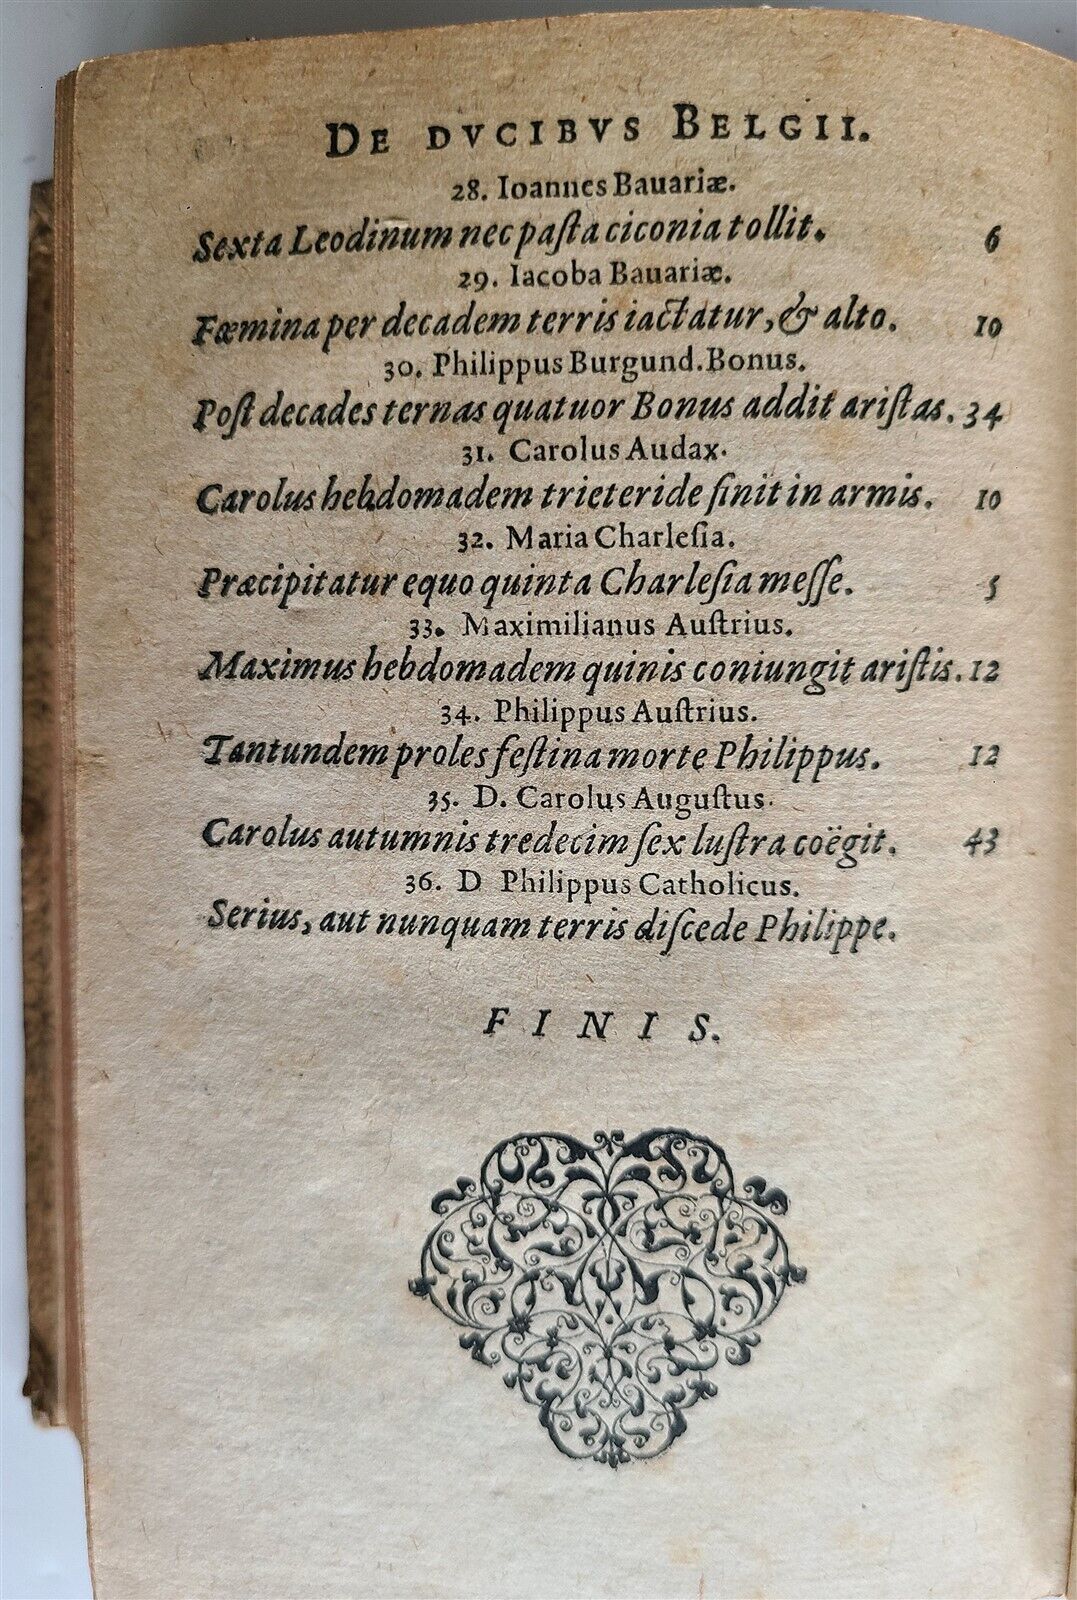 DE DVCIBVS BELGII.
28. Ioannes Bauariæ.
Sexta Leodinum nec paſta ciconia tollit. 6
29. Iacoba Bauariæ.
Fæmina per decadem terris iactatur, & alto. 10
30. Philippus Burgund. Bonus.
Poſt decades ternas quatuor Bonus addit ariſtas. 34
31. Carolus Audax.
Carolus hebdomadem trieteride finit in armis. 10
32. Maria Charleſia.
Præcipitatur equo quinta Charleſia meſſe. 5
33. Maximilianus Auſtrius.
Maximus hebdomadem quinis coniungit ariſtis. 12
34. Philippus Auſtrius.
Tantundem proles feſtina morte Philippus. 12
35. D. Carolus Auguſtus.
Carolus autumnis tredecim ſex luſtra coëgit. 43
36. D Philippus Catholicus.
Serius, aut nunquam terris diſcede Philippe.
FINIS.